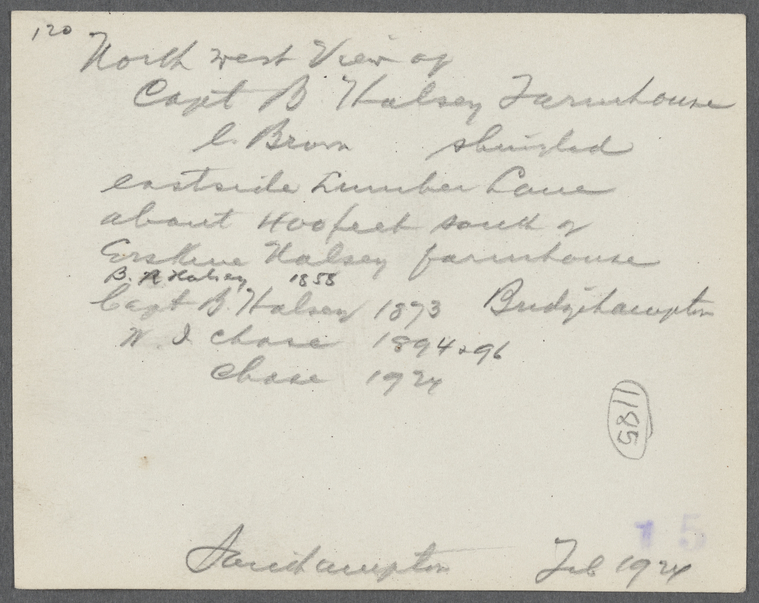 120
North west View of
Capt B Halsey Farmhouse
C. Brown shingled
eastside Lumber Lane
about 400 feet south of
Erskine Halsey farmhouse
B. R Halsey 1858
Capt B. Halsey 1873 Bridgehampton
W. I Chase 1894 & 96
Chase 1924
1185
15
Southampton Feb 1924